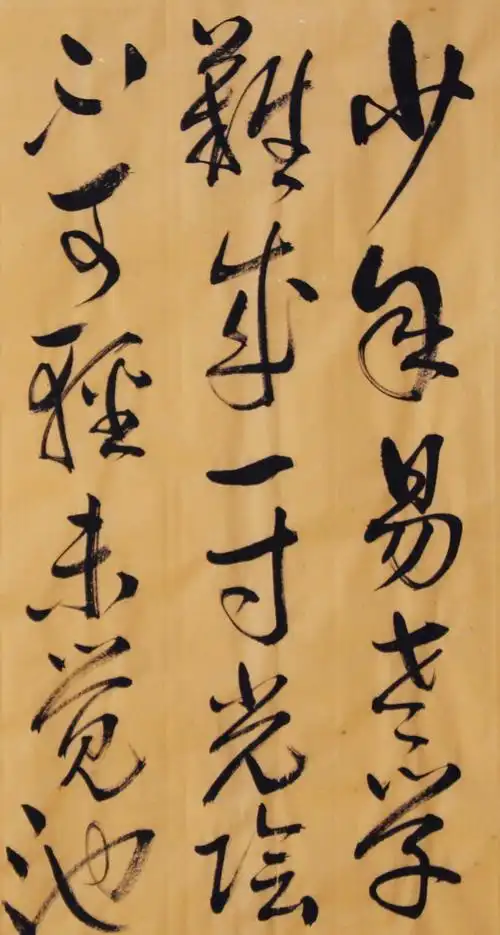 少年易老学
难成一寸光阴
不可轻未觉池